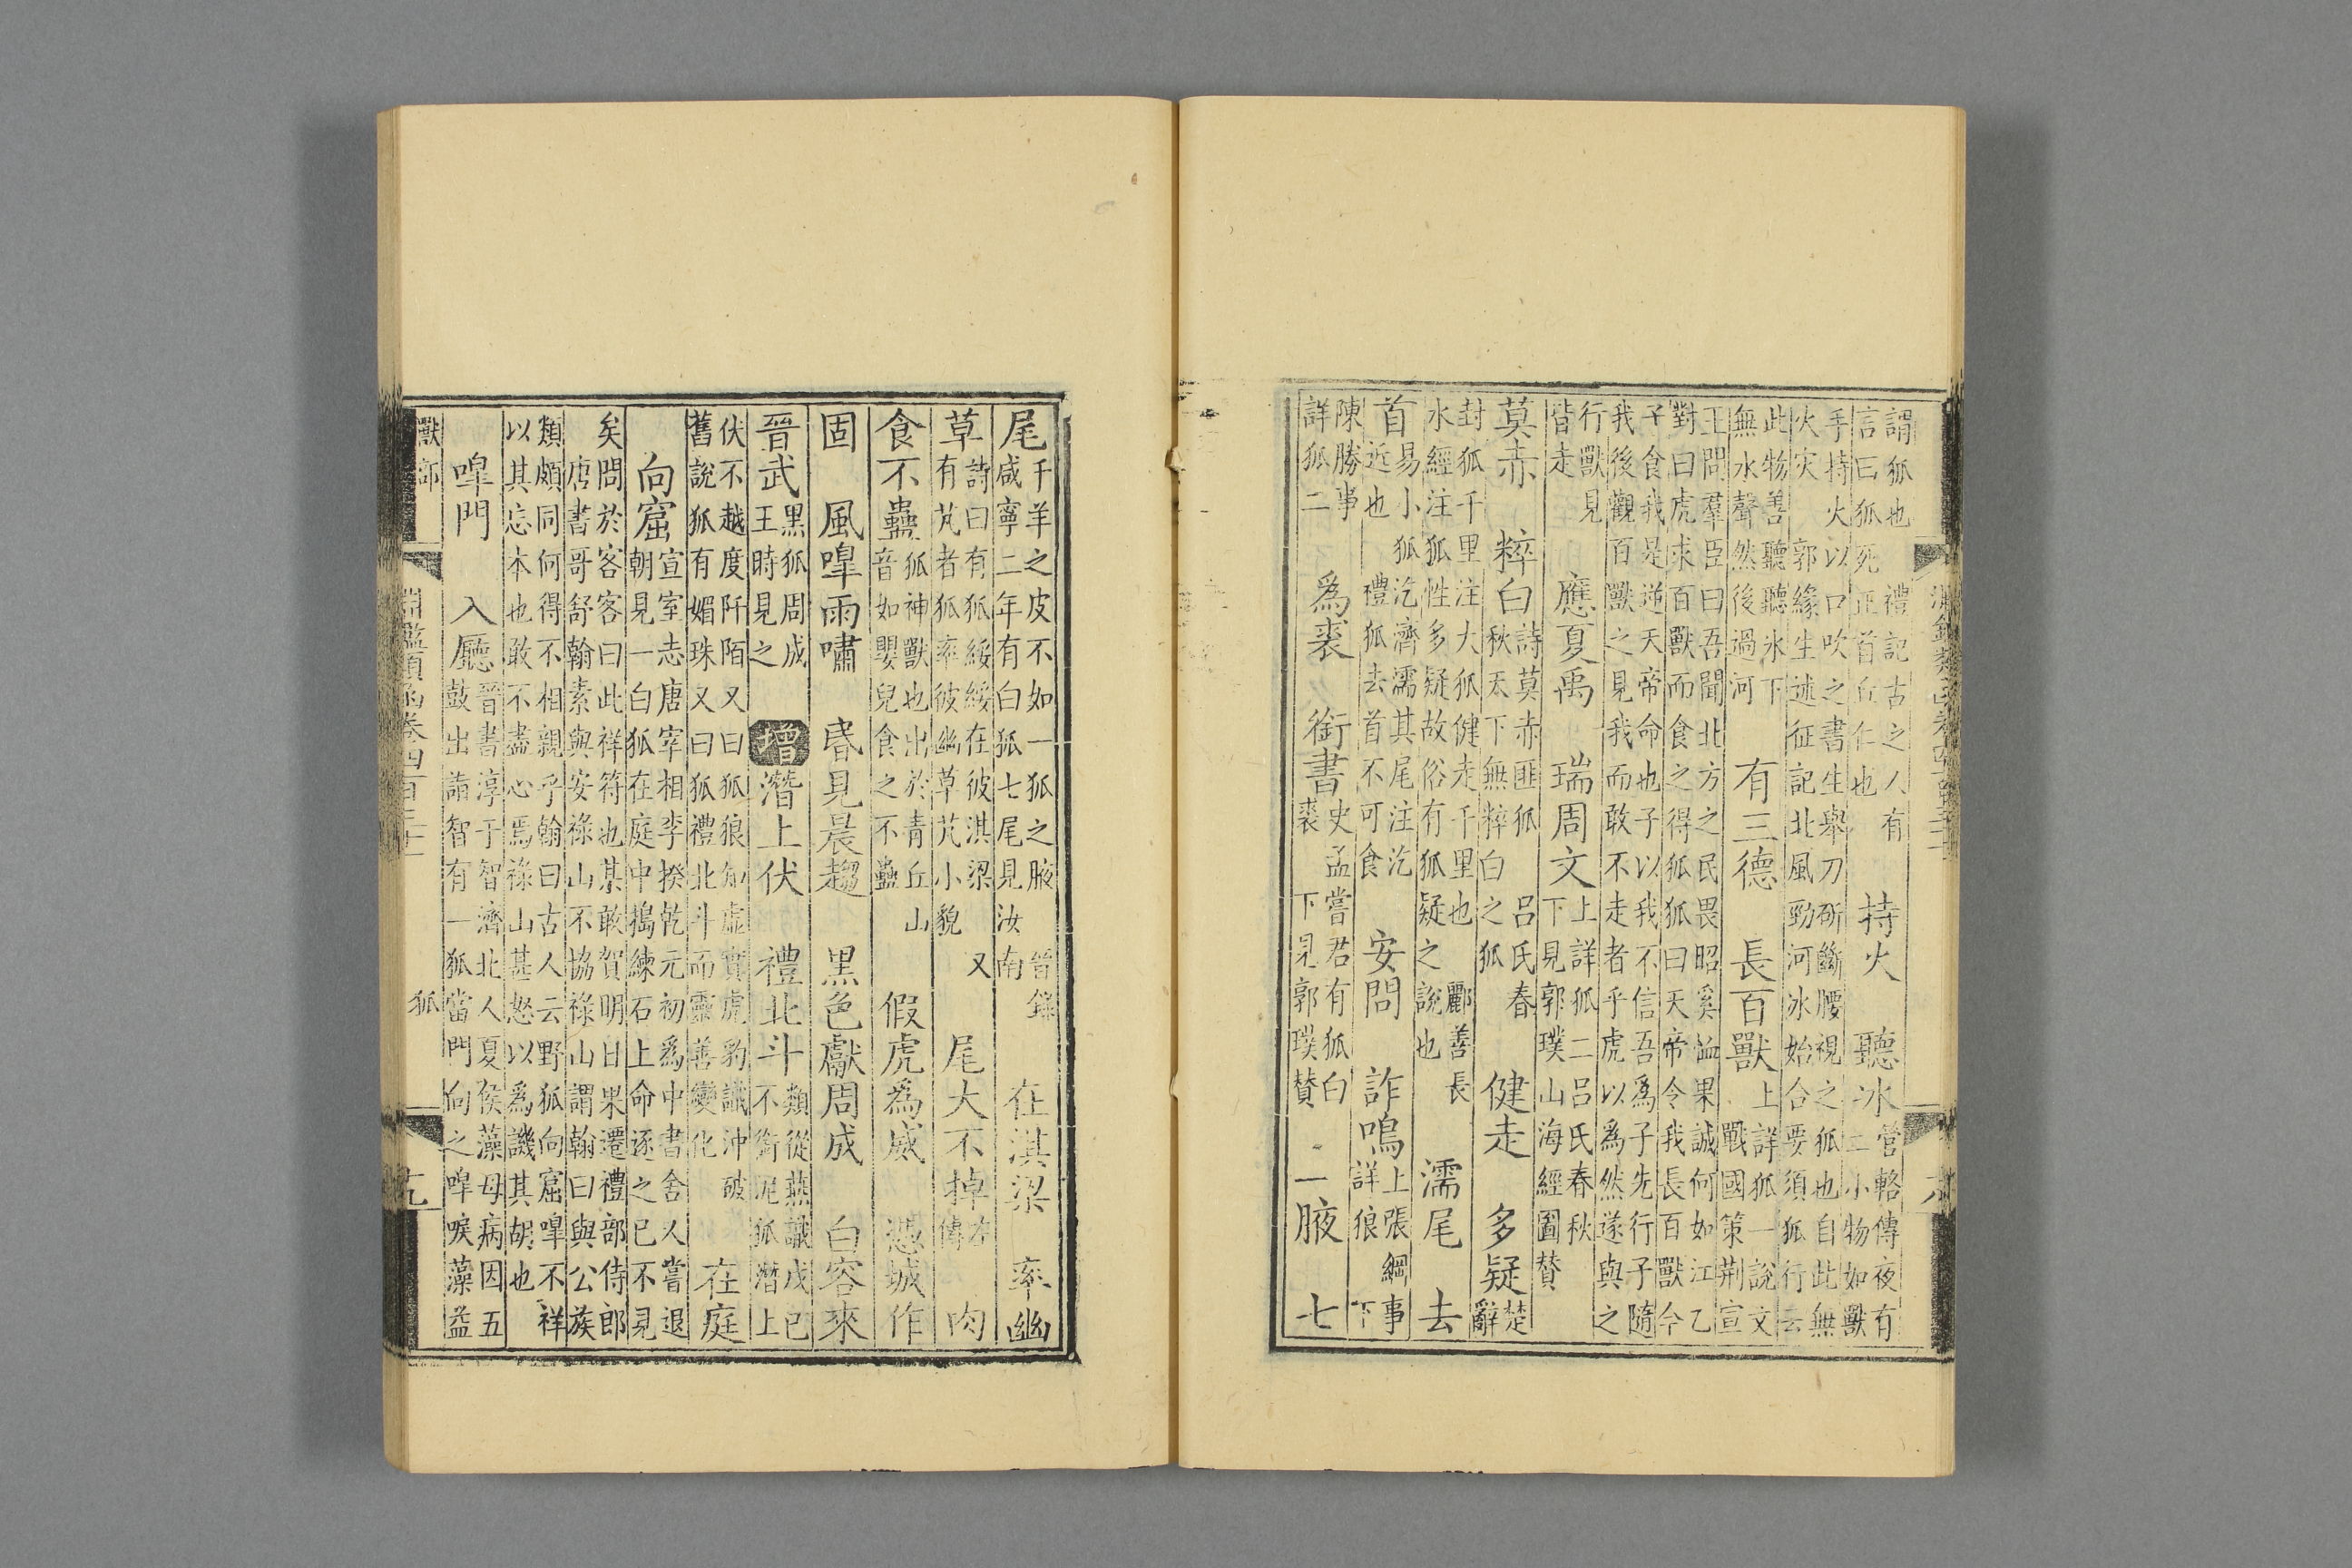 謂狐也
言曰狐死正首丘仁也
禮記古之人有
持火
聽冰
管輅傳夜有
二小物如獸
手持火以口吹之書生舉刀斫斷腰視之狐也自此無
火灾
郭緣生述征記北風勁河冰始合要須狐行云
此物善聽聽冰下
無水聲然後過河
有三德
長百獸
上詳狐一說文
戰國策荆宣
王問羣臣曰吾聞北方之民畏昭奚恤果誠何如江乙
對曰虎求百獸而食之得狐狐曰天帝令我長百獸今
子食我是逆天帝命也子以我不信吾爲子先行子隨
我後觀百獸之見我而敢不走者乎虎以爲然遂與之
行獸見
皆走
應夏禹
瑞周文
上詳狐二吕氏春秋
下見郭璞山海經圖贊
莫赤
粹白
詩莫赤匪狐
秋天下無粹白之狐
吕氏春
健走
多疑
楚
辭
封狐千里注大狐健走千里也
水經注狐性多疑故俗有狐疑之說也
酈善長
濡尾
去
首
易小狐汔濟濡其尾注汔
近也
禮狐去首不可食
安問
詐鳴
上張綱事
詳狼下
陳勝事
詳狐二
爲裘
銜書
史孟嘗君有狐白
裘
下見郭璞贊
一腋
七
尾
千羊之皮不如一狐之腋
咸寧二年有白狐七尾見汝南
晉錄
在淇梁
率幽
草
詩曰有狐綏綏在彼淇梁
有芃者狐率彼幽草芃小貌
又
尾大不掉
左傳
肉
食不蠱
狐神獸也出於青丘山
音如嬰兒食之不蠱
假虎爲威
憑城作
固
風嘷雨嘯
昏見晨趨
黑色獻周成
白容來
晉武
黑狐周成
王時見之
增
潛上伏
禮北斗
類從燕識戊己
不銜泥狐潛上
伏不越度阡陌又曰狐狼知虛實虎豹識沖破
舊說狐有媚珠又曰狐禮北斗而靈善變化
在庭
向窟
宣室志唐宰相李揆乾元初爲中書舍人嘗退
朝見一白狐在庭中搗練石上命逐之已不見
矣問於客客曰此祥符也某敢賀明日果遷禮部侍郎
唐書哥舒翰素與安祿山不協祿山謂翰曰與公族
類頗同何得不相親乎翰曰古人云野狐向窟嘷不祥
以其忘本也敢不盡心焉祿山甚怒以爲譏其胡也
嘷門
入廳
晉書淳于智濟北人夏侯藻母病因五
鼓出詣智有一狐當門向之嘷唳藻益
獸部
淵鑑類函卷四百三十一
狐